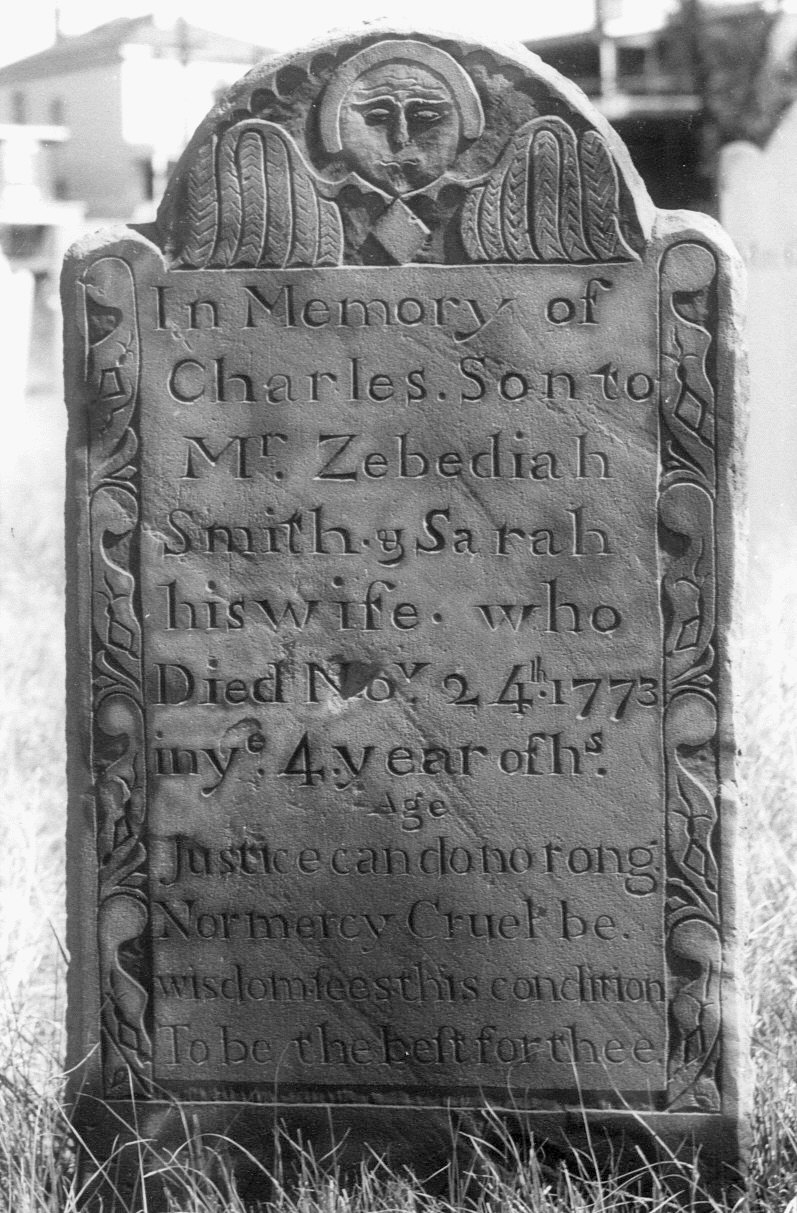 In Memory of
Charles. Son to
Mr. Zebediah
Smith. & Sarah
his wife. who
Died Nov 24th. 1773
in ye. 4. year of hs.
Age
Justice can do no rong
Nor mercy Cruel be.
wisdom ſees this condition
To be the beſt for thee.